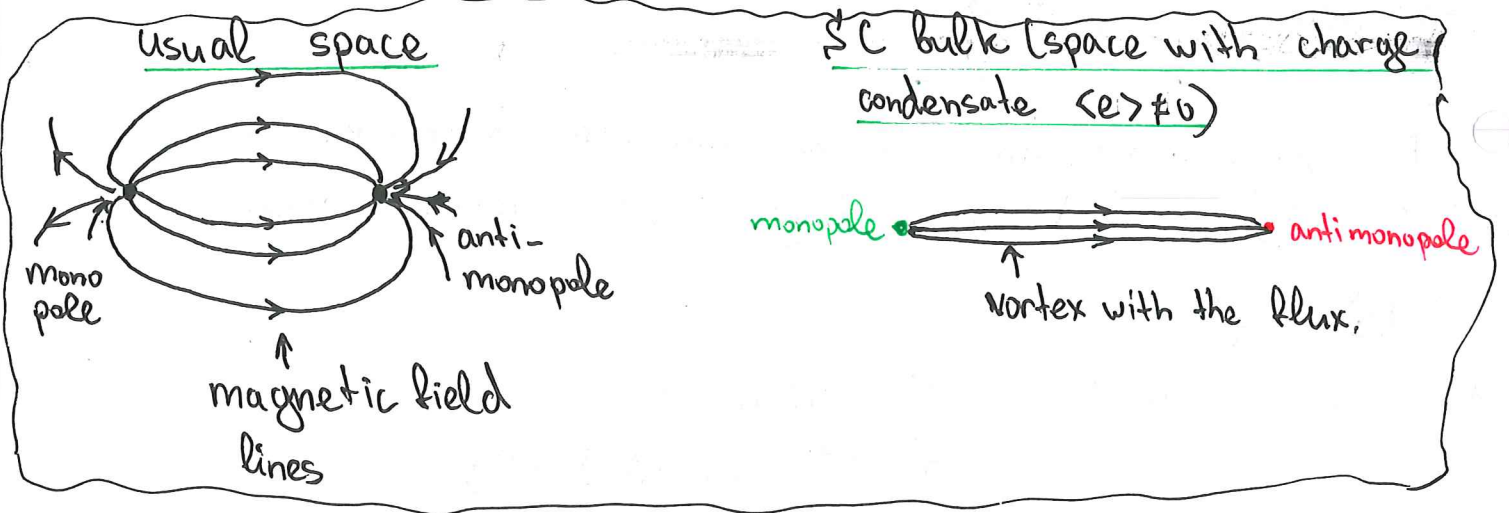 usual space
mono
pole
anti-
monopole
magnetic field
lines
SC bulk (space with charge
condensate <e>≠0)
monopole
antimonopole
vortex with the flux.